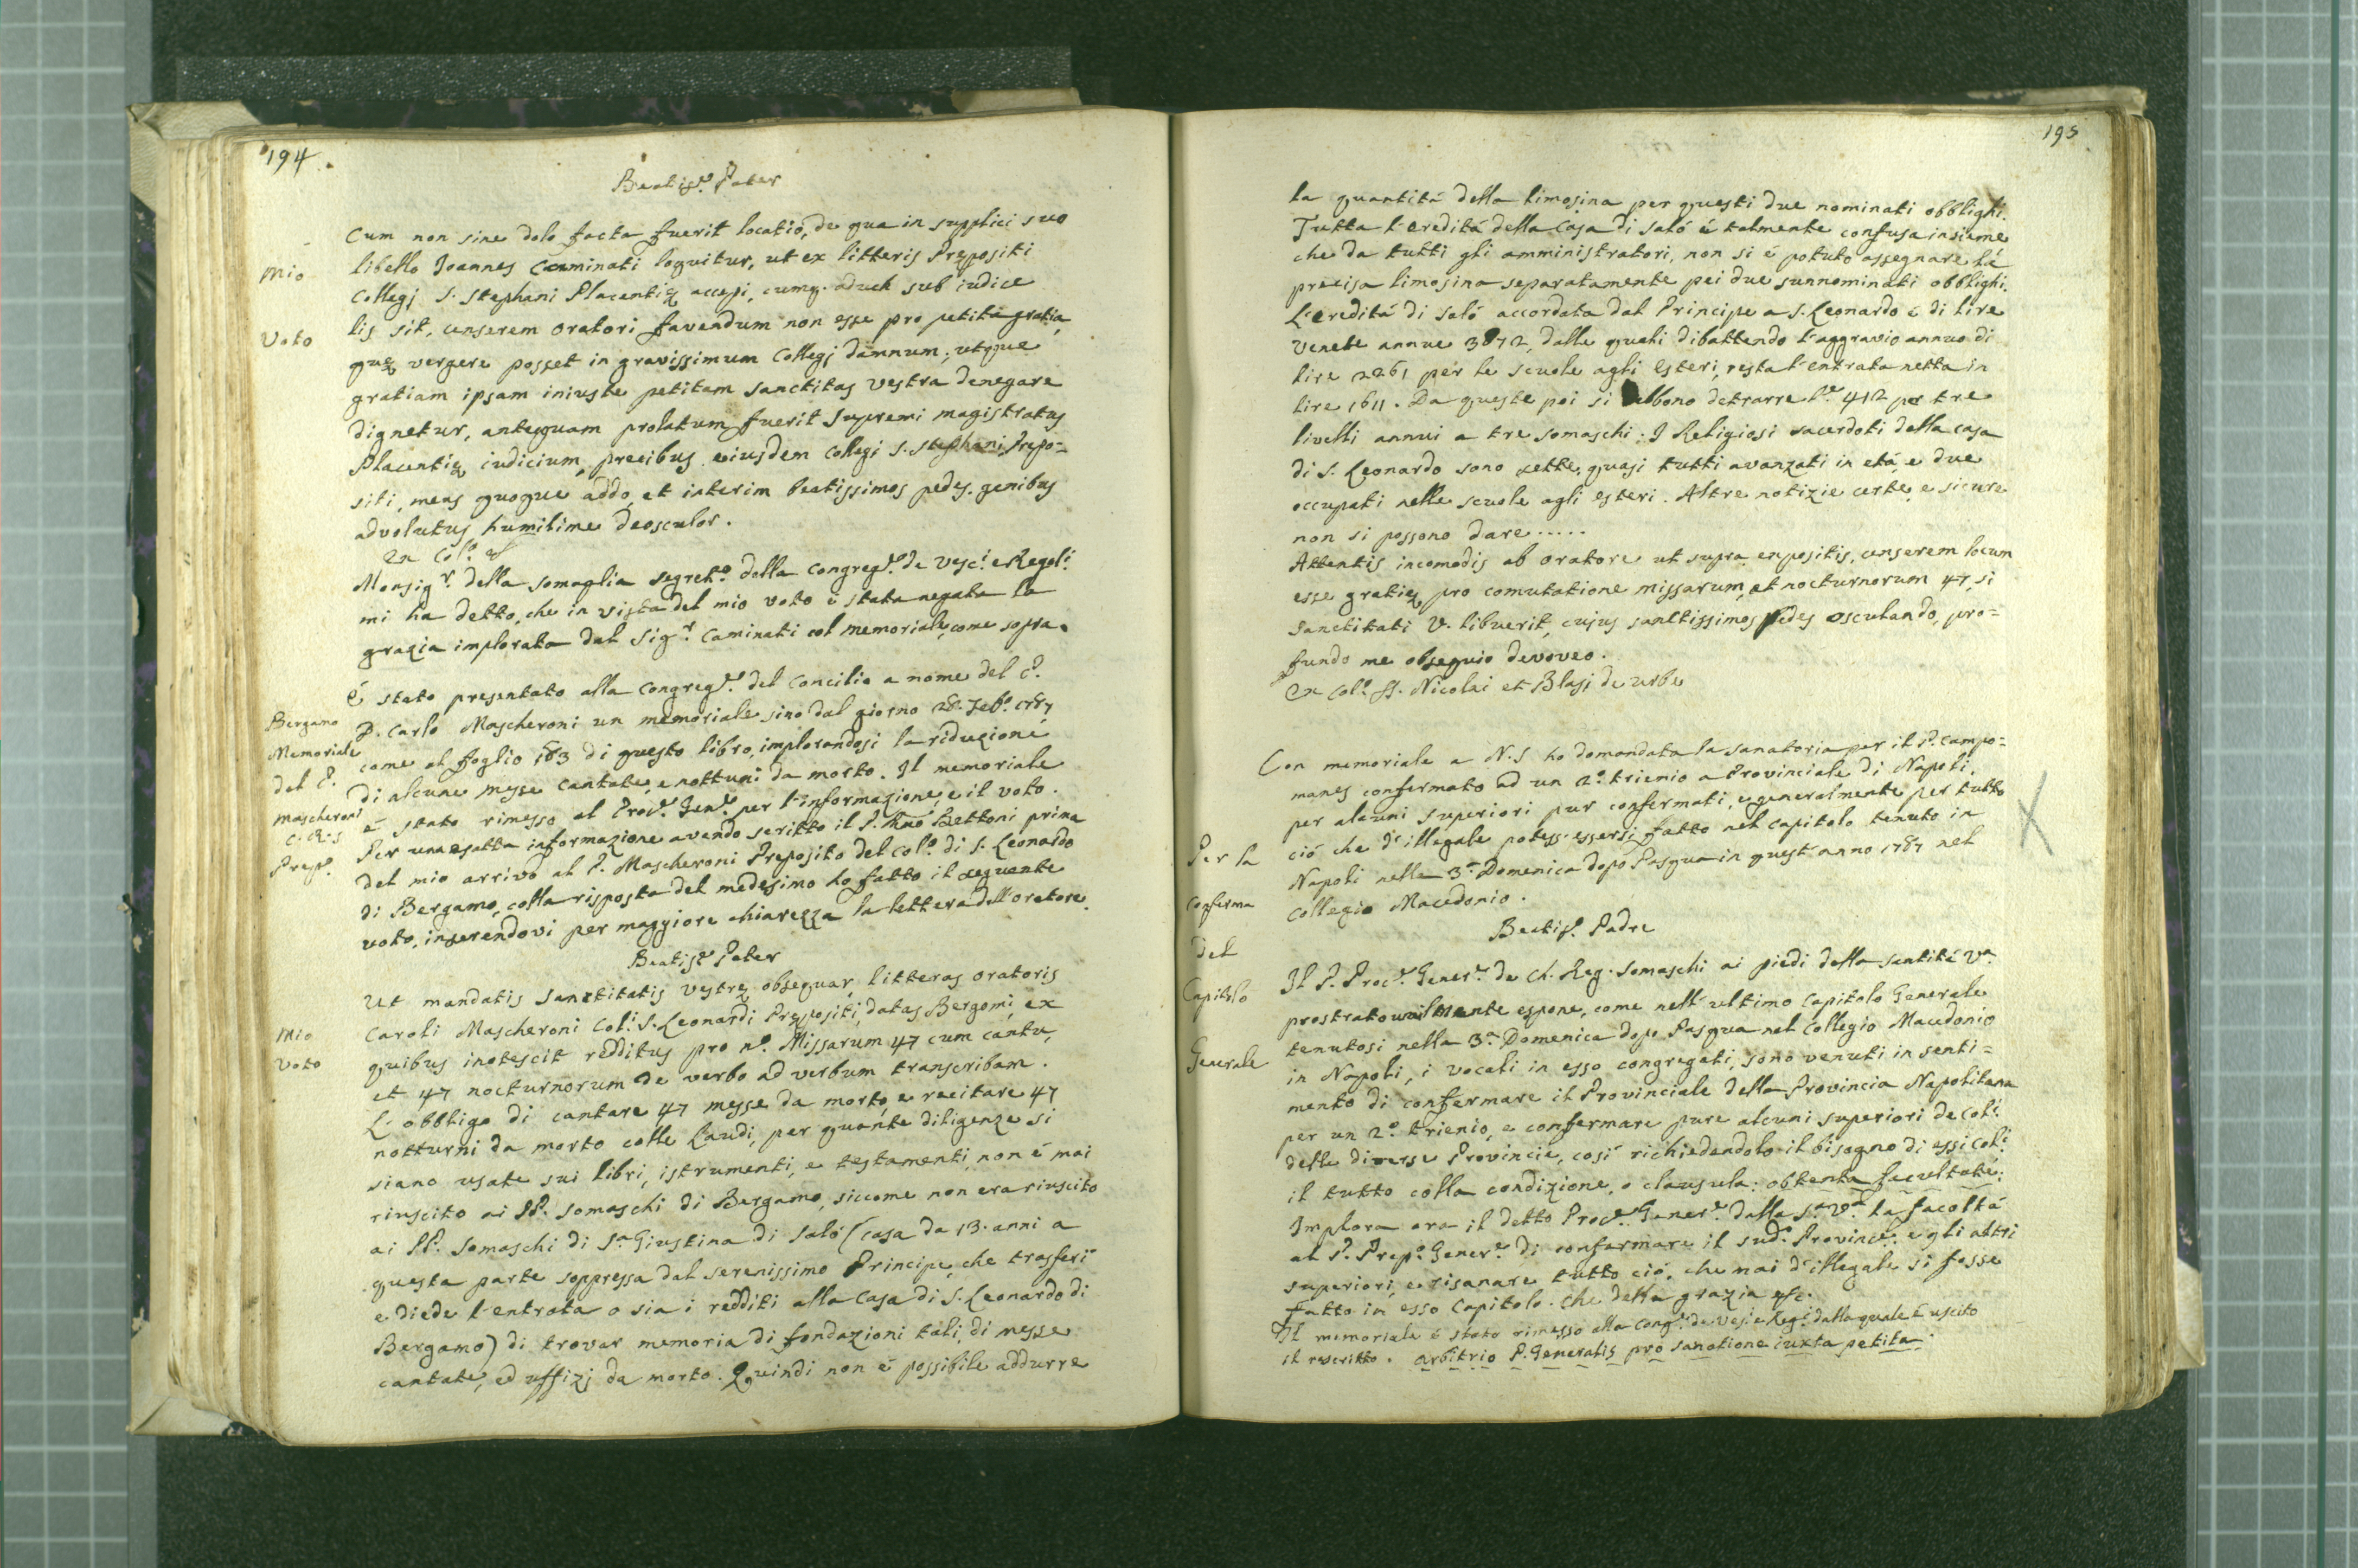 194
Beatiss.e Pater
Cum non sine dolo facta fuerit locatio, de qua in supplici suo
Mio
libello Joannes Caminati loquitur, ut ex litteris Prępositi
Collegj S. Stephani Placentię accepi, cumq. aduch sub iudice
Voto
lis sit, censerem oratori favendum non esse pro petitâ gratia,
quę vergere posset in gravissimum Collegj damnum; utque
gratiam ipsam iniuste petitam Sanctitas Vestra denegare
dignetur, antequam prolatum fuerit supremi magistratus
Placentię iudicium, precibus eiusdem Collegi S. Stephani Prepo=
siti, meas quoque addo, et interim beatissimos pedes genibus
advolutus humilime deosculor.
Ex Col.o &
Monsig.r della Somaglia segret.o della Congreg.e de Vesc.i e Regol.i
mi ha detto, che in vista del mio voto è stata negata la
grazia implorata dal Sig.r Caminati col memoriale, come sopra.
é stato presentato alla Congreg.e del Concilio a nome del P.
Bergamo
D. Carlo Mascheroni un memoriale sino dal giorno 28. Feb.o 1787
Memoriale
come al foglio 183 di questo libro, implorandosi la riduzione
del P.
di alcune messe cantate, e notturni da morto. Il memoriale
Mascheroni
é stato rimesso al Proc.e Gen.e per l'informazione, e il voto.
C. R. S
Per una esatta informazione avendo scritto il P. Bettoni prima
Prep.o
del mio arrivo al P. Mascheroni Preposito del Col.o di S. Leonardo
di Bergamo, colla risposta del medesimo ho fatto il seguente
voto, inserendovi per maggiore chiarezza la lettera dell'oratore.
Beatiss.e Pater
Ut mandatis Sanctitatis Vestrę obsequar, litteras oratoris
Mio
Caroli Mascheroni Col.i S. Leonardi Prępositi, datas Bergomi, ex
Voto
quibus inotescit redditus pro n.o Missarum 47 cum cantu,
et 47 nocturnorum de verbo ad verbum transcribam.
L'obbligo di cantare 47 messe da morto, e recitare 47
notturni da morto colle Laudi, per quante diligenze si
siano usate sui libri, istrumenti, e testamenti, non é mai
riuscito ai PP. Somaschi di Bergamo, siccome non era riuscito
ai PP. Somaschi di S.a Giustina di Saló (casa da 13. anni a
questa parte soppressa dal Serenissimo Principe, che trasferí
e diede l'entrata o sia i redditi alla Casa di S. Leonardo di
Bergamo) di trovar memoria di fondazioni tali, di messe
cantate, ed uffizj da morto. Quindi non é possibile addurre
195
la quantitá della limosina per questi due nominati obblighi.
Tutta l'ereditá della Casa di Saló é talmente confusa insieme
che da tutti gli amministratori, non si é potuto assegnare la
precisa limosina separatamente pei due sunnominati obblighi.
L'ereditá di Saló accordata dal Principe a S. Leonardo é di lire
Venete annue 3872, dalle quali dibattendo l'aggravio annuo di
lire 2261 per le scuole agli esteri, resta l'entrata netta in
lire 1611. Da queste poi si debbono detrarre l.e 412 per tre
livelli annui a tre Somaschi. I Religiosi sacerdoti della casa
di S. Leonardo sono sette, quasi tutti avanzati in etá, e due
occupati nelle scuole agli esteri. Altre notizie certe, e sicure
non si possono dare .....
Attentis incomodis ab oratore ut supra expositis, censerem locum
esse gratię pro comutatione missarum, et nocturnorum 47, si
Sanctitati V. libuerit, cujus sanctissimos pedes osculando, pro=
fundo me obsequio devoveo.
Ex Col.o SS. Nicolai et Blasj de Urbe
Con memoriale a N. S ho domandata la sanatoria per il P. Campo=
manes confermato ad un 2.o trienio a Provinciale di Napoli,
per alcuni Superiori pur confermati, e generalmente per tutto
Per la
ció che d'illegale potess. essersi fatto nel Capitolo tenuto in
Napoli nella 3.a Domenica dopo Pasqua in quest'anno 1787 nel
Conferma
Collegio Macedonio.
del
Beatiss.o Padre
Capitolo
Il P. Proc.e Gener.e de Ch. Reg. Somaschi ai piedi della Santitá V.a
prostrato umilmente espone, come nell'ultimo Capitolo Generale
Generale
tenutosi nella 3.a Domenica dopo Pasqua nel Collegio Macedonio
in Napoli, i vocali in esso congregati, sono venuti in senti=
mento di confermare il Provinciale della Provincia Napolitana
per un 2.o trienio, e confermare pure alcuni Superiori de Col.i
delle diverse Provincie, cosí richiedendolo il bisogno di essi Col.i
il tutto colla condizione, o clausula: obtenta facultate.
Implora ora il detto Proc.e Gener.e dalla S.a V.a la facoltá
al P. Prep.o Gener.e di confermare il sud.o Provinc.e e gli altri
superiori, e risanare tutto ció, che mai d'illegale si fosse
fatto in esso Capitolo. Che della grazia &c.
Il memoriale é stato rimesso alla Cong.e de Ves. e Reg.i dalla quale é uscito
il rescritto. arbitrio P. Generalis pro sanatione iuxta petita.